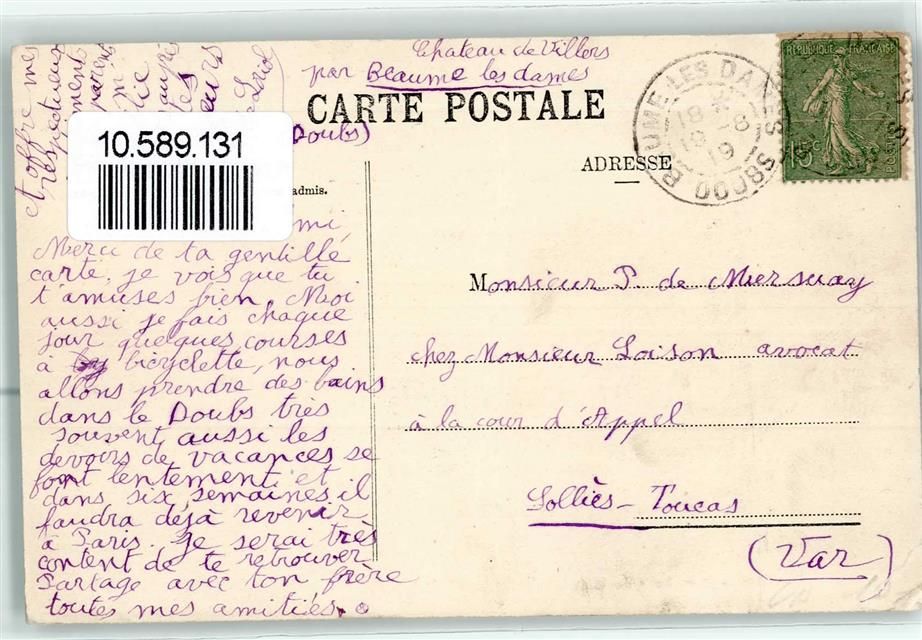 Chateau de Villers
par Beaume les dames
(Doubs)
CARTE POSTALE
ADRESSE
BEAUME LES DAMES
18 *
18 -8
19
DOUBS
REPUBLIQUE FRANÇAISE
15c
POSTES
10.589.131
admis.
Merci de ta gentille
carte. je vois que tu
t'amuses bien. Moi
aussi je fais chaque
jour quelques courses
à bicyclette, nous
allons prendre des bains
dans le Doubs très
souvent, aussi les
devoirs de vacances se
font lentement et
dans six semaines il
faudra déjà revenir
à Paris. Je serai très
content de te retrouver
Partage avec ton frère
toutes mes amitiés.
et offre mes
respectueux
Monsieur P. de
chez Monsieur Loison avocat
à la cour d'Appel
Solliès-Toucas
(Var)